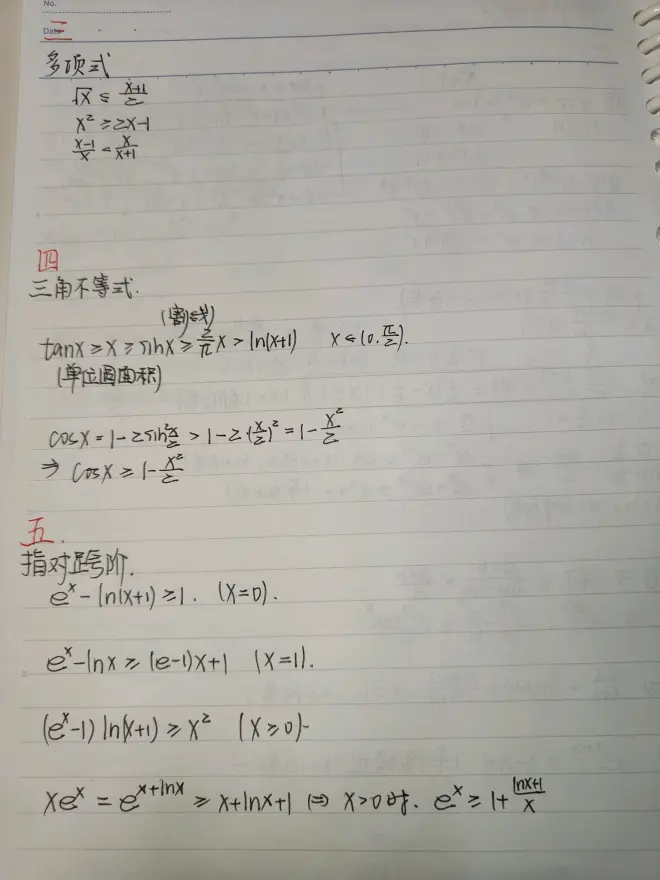 No.
Date
三
多项式
√x ≤ (x+1)/2
x² ≥ 2x-1
(x-1)/x < x/(x+1)
四
三角不等式.
(割线)
tanx ≥ x ≥ sinx ≥ (2/π)x > ln(x+1) x∈(0.π/2).
(单位圆面积)
cosx = 1-2sin²(x/2) > 1-2·(x/2)² = 1-x²/2
⇒ cosx ≥ 1-x²/2
五.
指对跨阶.
eˣ-ln(x+1) ≥ 1. (x=0).
eˣ-lnx ≥ (e-1)x+1 (x=1).
(eˣ-1) ln(x+1) ≥ x² (x≥0).
xeˣ = e^(x+lnx) ≥ x+lnx+1 ⇔ x>0时. eˣ ≥ 1+(lnx+1)/x